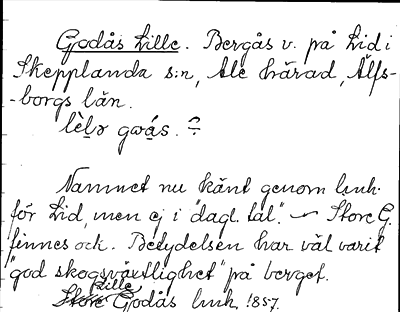 Godås Lille. Bergås v. på Lid i
Skepplanda s:n, Ale härad, Älfs-
-borgs län.
lèḷə gwás.
Namnet nu känt genom lmk.
för Lid, men ej i "dagl. tal". — Store G.
finnes ock. Betydelsen har väl varit
"god skogsväxtlighet" på berget.
Lille
Store Godås lmk 1857.